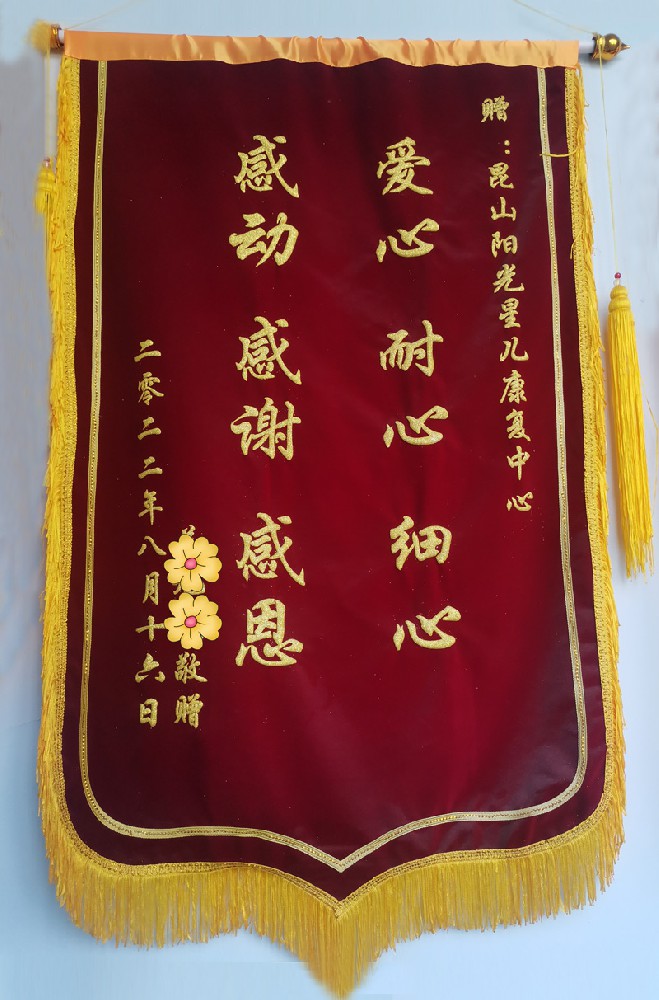 赠：昆山阳光星儿康复中心
爱心 耐心 细心
感动 感谢 感恩
敬赠
二零二二年八月十六日